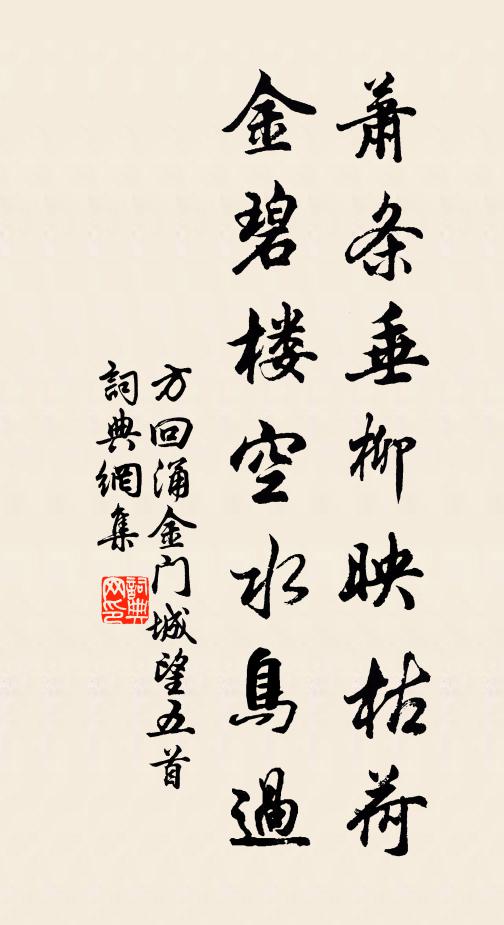 蕭条垂柳映枯荷
金碧楼空水鳥過
方回涌金门城望五首
詞典網集
詞典網印